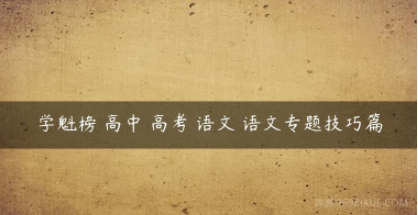 学魁榜 高中 高考 语文 语文专题技巧篇